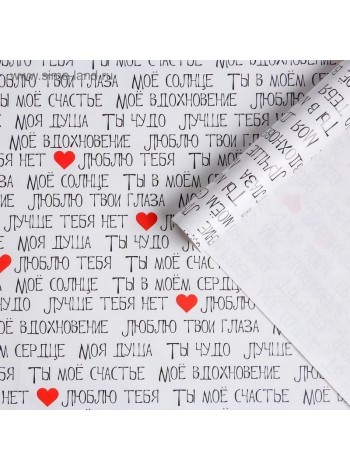 Люблю твои глаза Моё солнце Ты в моём сердце
www.sima-land.ru
Ты моё счастье Моё вдохновение Люблю тебя
Моё вдохновение Люблю твои
Моя душа Ты чудо Лучше тебя
тебя нет ❤ Люблю тебя Ты
Моё солнце Ты в моём
Люблю твои глаза
Лучше тебя нет ❤
Моя душа Ты чудо
❤ Люблю тебя Ты моё счастье
Моё солнце Ты в моём сердце
чудо Лучше тебя нет ❤ Люблю
Моё вдохновение Люблю твои глаза
сердце Моя душа Ты чудо Лучше
тебя Ты моё счастье Моё вдохновение
тебя нет ❤ Люблю тебя Ты моё